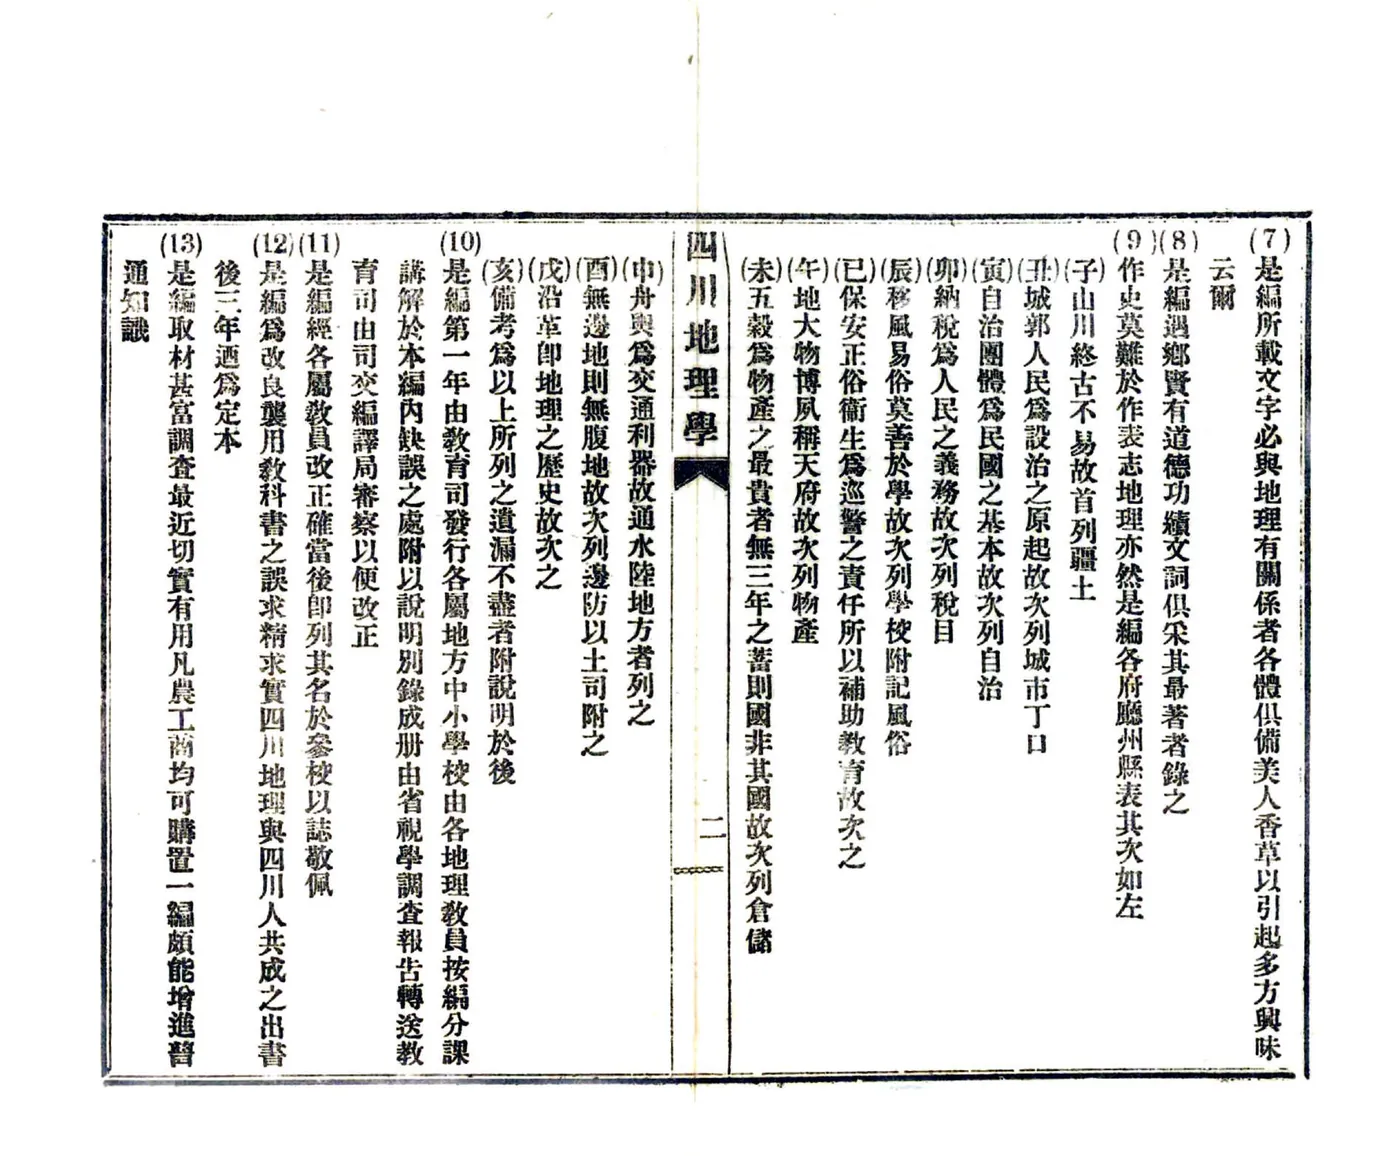 (7)是編所載文字必與地理有關係者各體俱備美人香草以引起多方興味
云爾
(8)是編遇鄉賢有道德功績文詞俱采其最著者錄之
(9)作史莫難於作表志地理亦然是編各府廳州縣表其次如左
(子)山川終古不易故首列疆土
(丑)城郭人民爲設治之原起故次列城市丁口
(寅)自治團體爲民國之基本故次列自治
(卯)納稅爲人民之義務故次列稅目
(辰)移風易俗莫善於學故次列學校附記風俗
(巳)保安正俗衞生爲巡警之責任所以補助教育故次之
(午)地大物博夙稱天府故次列物產
(未)五穀爲物產之最貴者無三年之蓄則國非其國故次列倉儲
四川地理學
二
(申)舟輿爲交通利器故通水陸地方者列之
(酉)無邊地則無腹地故次列邊防以土司附之
(戌)沿革卽地理之歷史故次之
(亥)備考爲以上所列之遺漏不盡者附說明於後
(10)是編第一年由教育司發行各屬地方中小學校由各地理教員按編分課
講解於本編內缺誤之處附以說明別錄成册由省視學調查報告轉送教
育司由司交編譯局審察以便改正
(11)是編經各屬教員改正確當後卽列其名於參校以誌敬佩
(12)是編爲改良襲用教科書之誤求精求實四川地理與四川人共成之出書
後三年迺爲定本
(13)是編取材甚富調查最近切實有用凡農工商均可購置一編頗能增進普
通知識